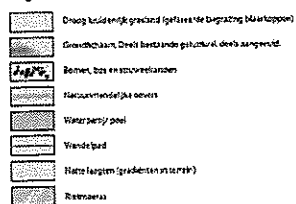 Droog kruidenrijk grasland (gefaseerde begrazing blaarkoppen)
Grondlichaam, Deels bestaande deels aangevuld.
Bomen, bos en
Natuurvriendelijke oevers
Waterpartij/ poel
Wandelpad
Natte laagten (gradiënten in terrein)
Rietmoeras